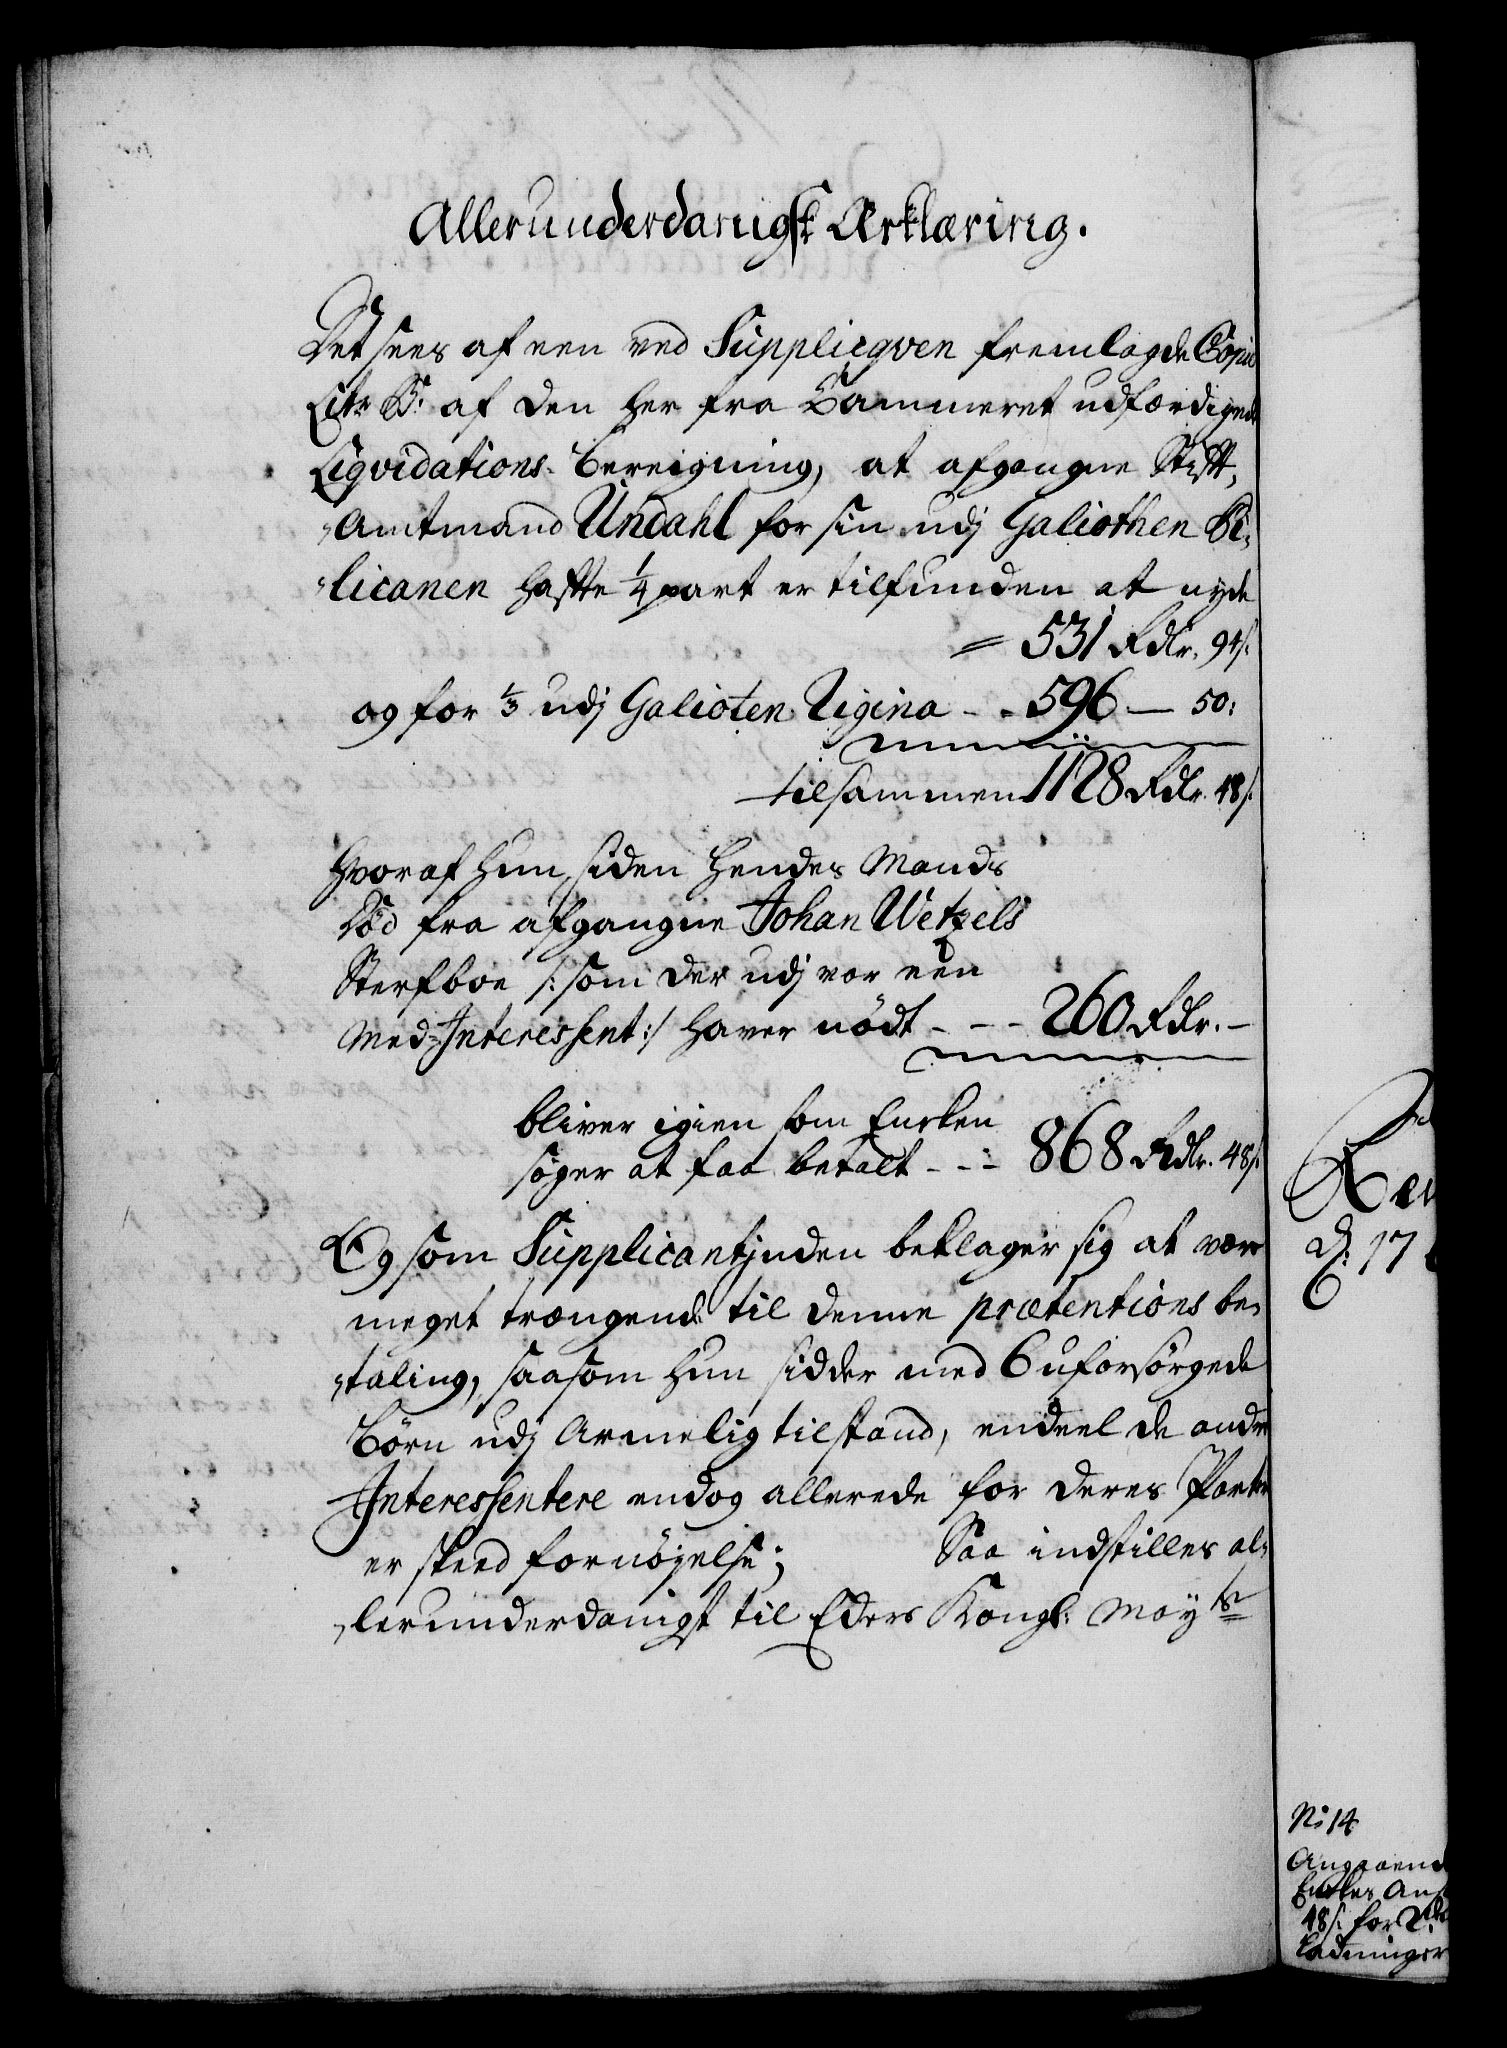 Allerunderdanigst Erklæring.
Det sees af een ved Suppliqven fremlagde Copie
Litr. B: af den her fra Cammeret udfærdigede
Liqvidations-bereigning, at afgangne Stift„
„Amtmand Undahl for sin udj Galiothen Pe„
„licanen hafte 1/4 part er tilfunden at nyde
= 531 Rdlr. 94 s.
og for 1/3 udj Galioten Regina - - 596 — 50:
tilsammen 1128 Rdlr. 48 s.
hvoraf hun, siden hendes Mands
Død fra afgangne Johan Wetzels
Sterfboe /: som der udj var een
Med-Interessent :/ haver nødt - - - 260 Rdlr. -
bliver igien som Encken
søger at faa betalt - - - 868 Rdlr. 48 s.
Og som Supplicantinden beklager sig at være
meget trængende til denne prætentions be„
„taling, saasom hun sidder med 6 uforsørgede
Børn udj Armelig tilstand, endeel de andre
Interessentere endog allerede for deres Parter
er skeed fornøyelse; Saa indstilles al„
„lerunderdanigst til Eders Kongl: May:ts
d. 17
No 14
Angaaend
Enckes An
48 s. for
Ladninger